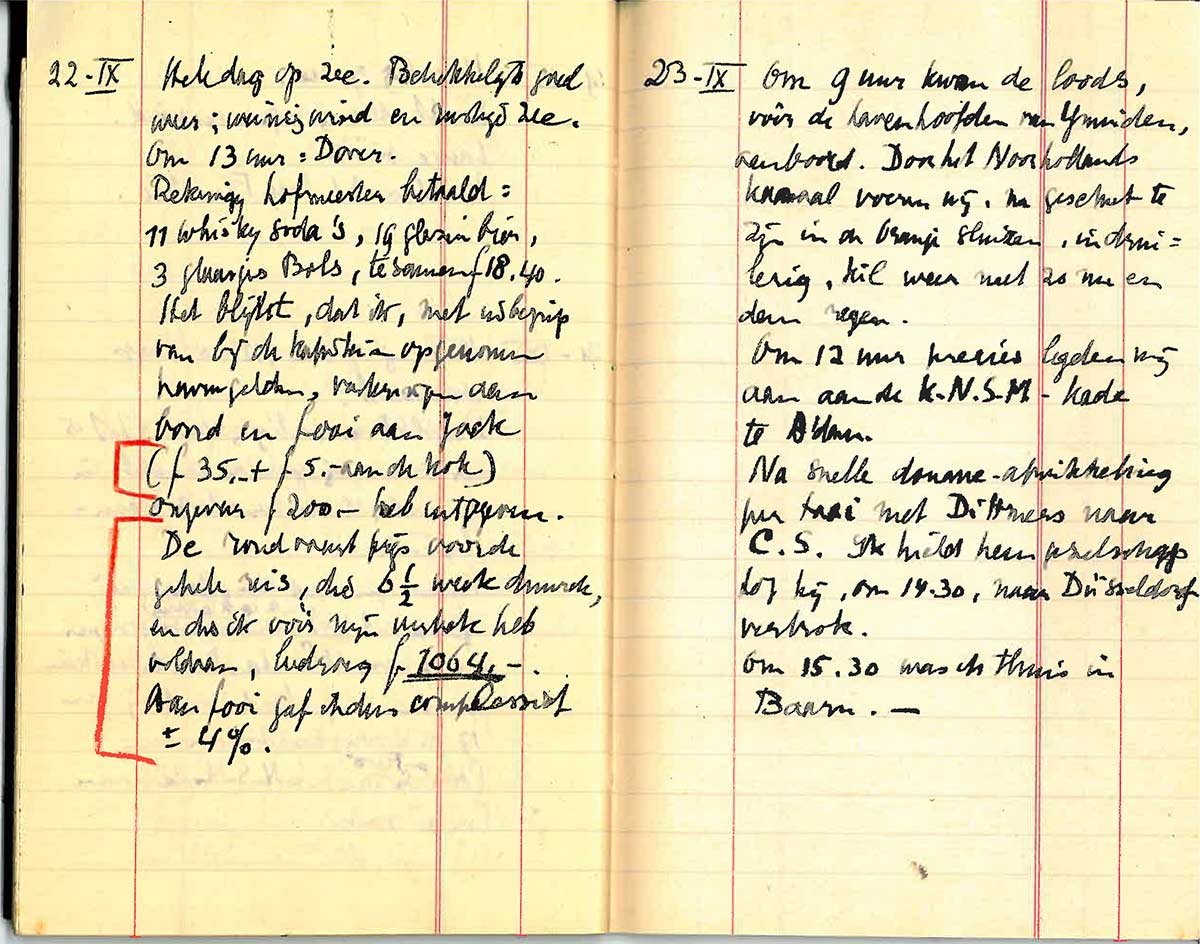 22-IX Hele dag op zee. Betrekkelijk goed
weer; weinig wind en rustige zee.
Om 13 uur = Dover.
Rekening hofmeester betaald =
11 whisky soda's, 19 glazen bier,
3 glaasjes Bols, tesamen f 18.40.
Het blijkt, dat ik, met inbegrip
van bij de kapitein opgenomen
havengelden, verteringen aan
boord en fooi aan Jack
(f 35.- + f 5.- aan de kok)
ongeveer f 200.- heb uitgegeven.
De rondvaart prijs voor de
gehele reis, die 6 1/2 week duurde,
en die ik vóór mijn vertrek heb
voldaan, bedroeg f 1064.-.
Aan fooi gaf ik dus
± 4%.
23-IX Om 9 uur kwam de loods,
vóór de havenhoofden van Ymuiden,
aan boord. Door het Noorhollands
kanaal voeren wij, na geschut te
zijn in de Oranje sluizen, in drui=
lerig, kil weer met zo nu en
dan regen.
Om 12 uur precies legden wij
aan aan de K.N.S.M - kade
te A'dam.
Na snelle douane-afwikkeling
per taxi met Dittmers naar
C.S. Ik hield hem gezelschap
tot hij, om 14.30, naar Düsseldorf
vertrok.
Om 15.30 was ik thuis in
Baarn. —